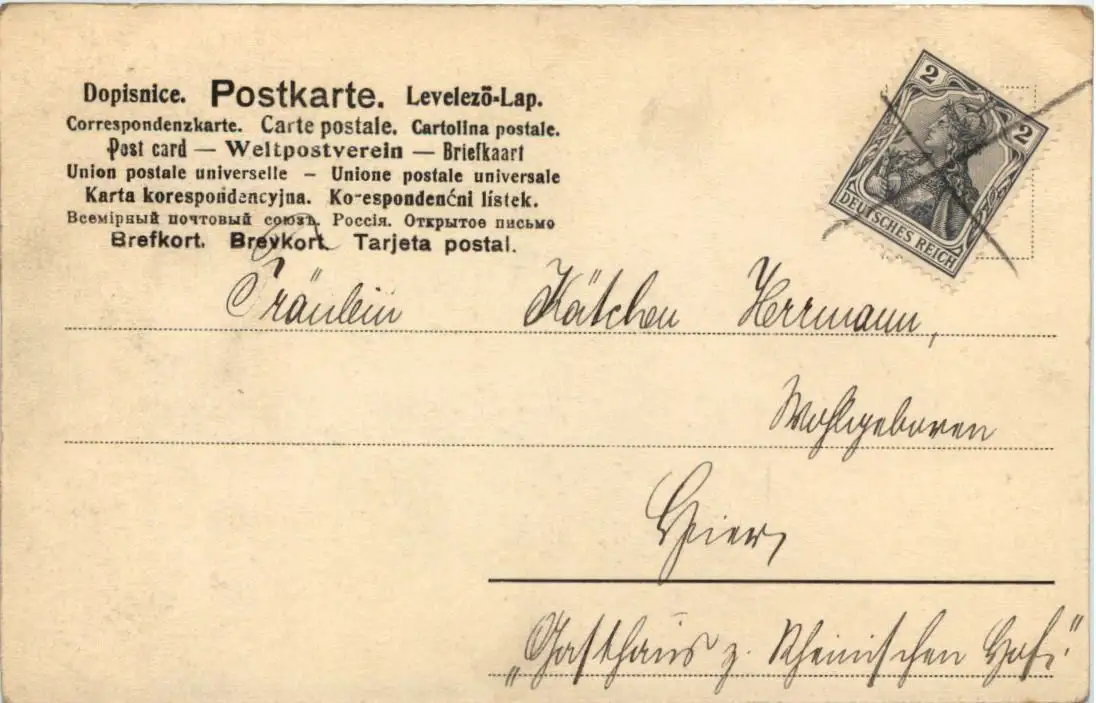 Dopisnice. Postkarte. Levelező-Lap.
Correspondenzkarte. Carte postale. Cartolina postale.
Post card — Weltpostverein — Briefkaart
Union postale universelle — Unione postale universale
Karta korespondencyjna. Korespondenćni lístek.
Всемірный почтовый союзъ. Россія. Открытое письмо
Brefkort. Brevkort. Tarjeta postal.
2 2
DEUTSCHES REICH
Fräulein Kätchen Herrmann,
Wohlgeboren
Hier,
„Gasthaus z. Rheinischen Hof."